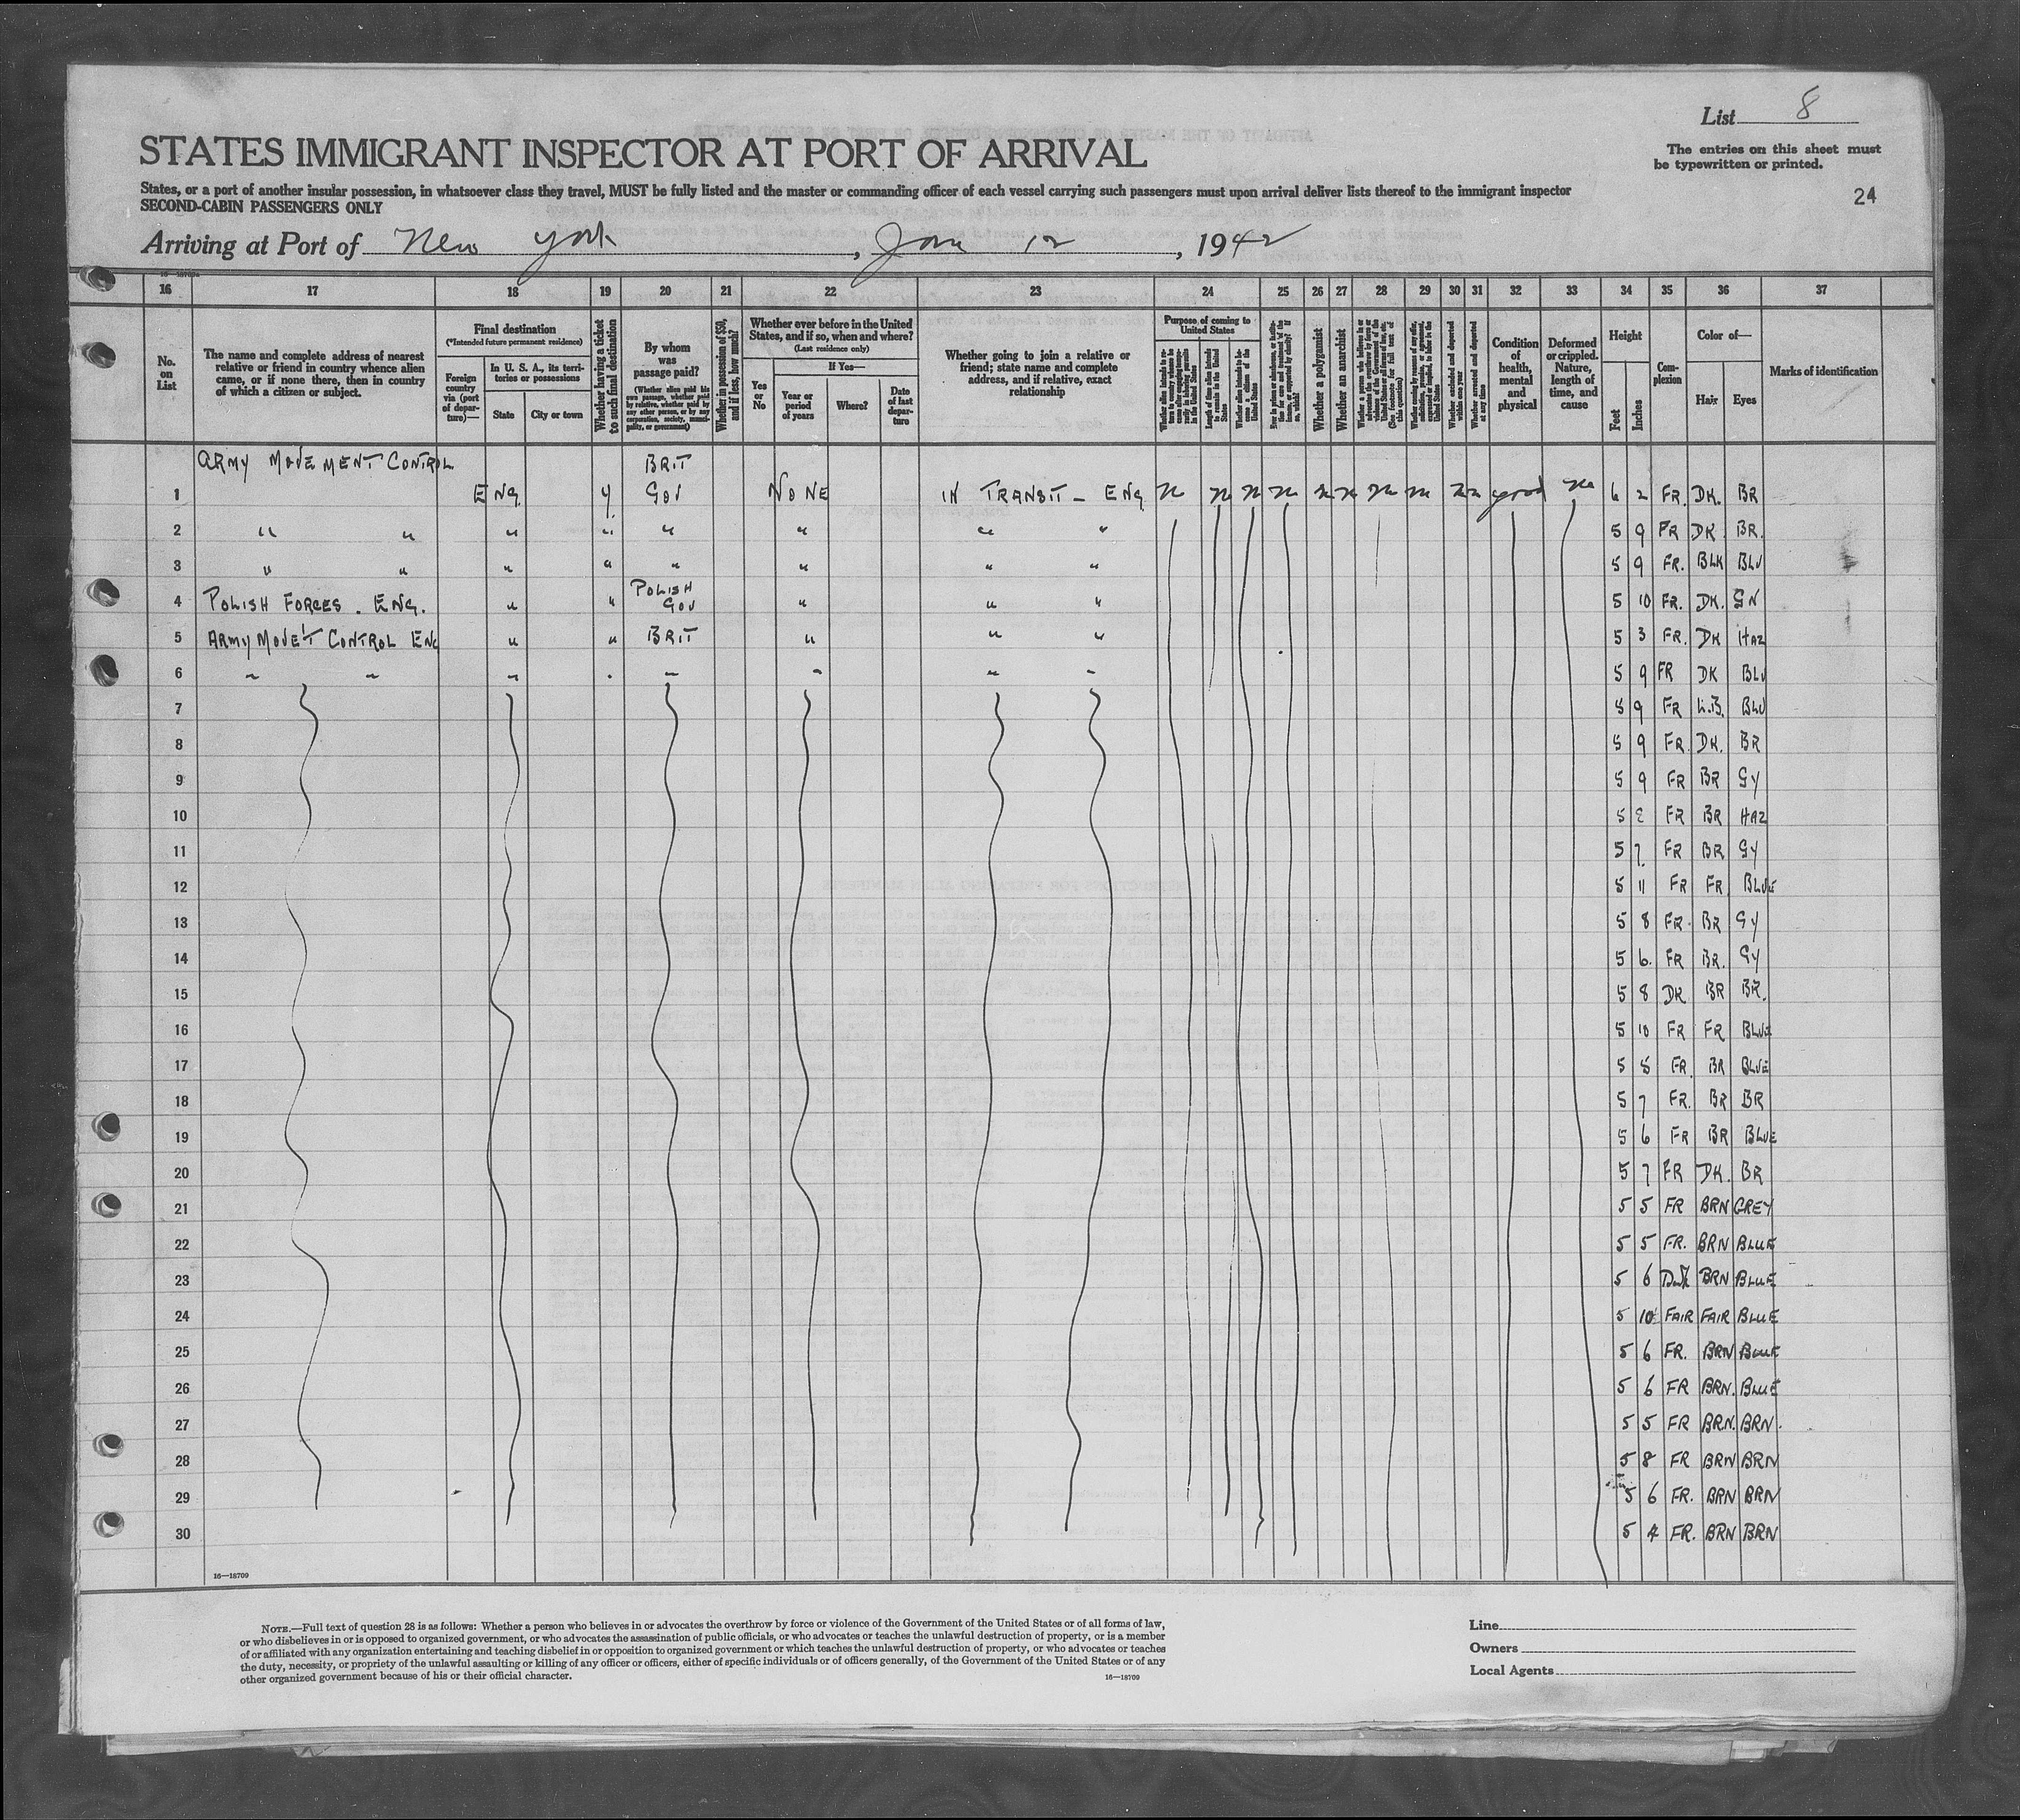 List 8
STATES IMMIGRANT INSPECTOR AT PORT OF ARRIVAL
The entries on this sheet must
be typewritten or printed.
States, or a port of another insular possession, in whatsoever class they travel, MUST be fully listed and the master or commanding officer of each vessel carrying such passengers must upon arrival deliver lists thereof to the immigrant inspector
SECOND-CABIN PASSENGERS ONLY
24
Arriving at Port of New York, 12, 1942
16 17 18 19 20 21 22 23 24 25 26 27 28 29 30 31 32 33 34 35 36 37
No. on List
The name and complete address of nearest relative or friend in country whence alien came, or if none there, then in country of which a citizen or subject.
Final destination
(*Intended future permanent residence)
Foreign country via (port of departure)—
In U. S. A., its territories or possessions
State
City or town
Whether having a ticket to such final destination
By whom was passage paid?
(Whether alien paid his own passage, whether paid by relative, whether paid by any other person, or by any corporation, society, municipality, or government)
Whether in possession of $50, and if less, how much?
Whether ever before in the United States, and if so, when and where?
(Last residence only)
Yes or No
If Yes—
Year or period of years
Where?
Date of last departure
Whether going to join a relative or friend; state name and complete address, and if relative, exact relationship
Purpose of coming to United States
Whether a polygamist
Whether an anarchist
Condition of health, mental and physical
Deformed or crippled. Nature, length of time, and cause
Height
Feet
Inches
Complexion
Color of—
Hair
Eyes
Marks of identification
ARMY MOVEMENT CONTROL BRIT
1 ENG. Y GOV NONE IN TRANSIT - ENG good no 6 2 FR. DK. BR
2 " " " " " " " " 5 9 FR DK. BR.
3 " " " " " " " " 5 9 FR. BLK BLU
POLISH
4 POLISH FORCES. ENG. " " GOV " " " 5 10 FR. DK. GN
5 ARMY MOVE'T CONTROL ENG " " BRIT " " " 5 3 FR. DK HAZ
6 " " " " " " " " 5 9 FR DK BLU
7 5 9 FR BLU
8 5 9 FR. DK. BR
9 5 9 FR BR GY
10 5 FR BR HAZ
11 5 7. FR BR GY
12 5 11 FR FR BLUE
13 5 8 FR. BR GY
14 5 6. FR BR. GY
15 5 8 DK BR BR.
16 5 10 FR FR BLUE
17 5 8 FR. BR BLUE
18 5 7 FR. BR BR
19 5 6 FR BR BLUE
20 5 7 FR DK. BR
21 5 5 FR BRN GREY
22 5 5 FR. BRN BLUE
23 5 6 BRN BLUE
24 5 10 FAIR FAIR BLUE
25 5 6 FR. BRN BLUE
26 5 6 FR BRN. BLUE
27 5 5 FR BRN. BRN.
28 5 8 FR BRN BRN
29 5 6 FR. BRN BRN
30 5 4 FR. BRN BRN
16—18709
NOTE.—Full text of question 28 is as follows: Whether a person who believes in or advocates the overthrow by force or violence of the Government of the United States or of all forms of law,
or who disbelieves in or is opposed to organized government, or who advocates the assassination of public officials, or who advocates or teaches the unlawful destruction of property, or is a member
of or affiliated with any organization entertaining and teaching disbelief in or opposition to organized government or which teaches the unlawful destruction of property, or who advocates or teaches
the duty, necessity, or propriety of the unlawful assaulting or killing of any officer or officers, either of specific individuals or of officers generally, of the Government of the United States or of any
other organized government because of his or their official character.
16—18709
Line
Owners
Local Agents